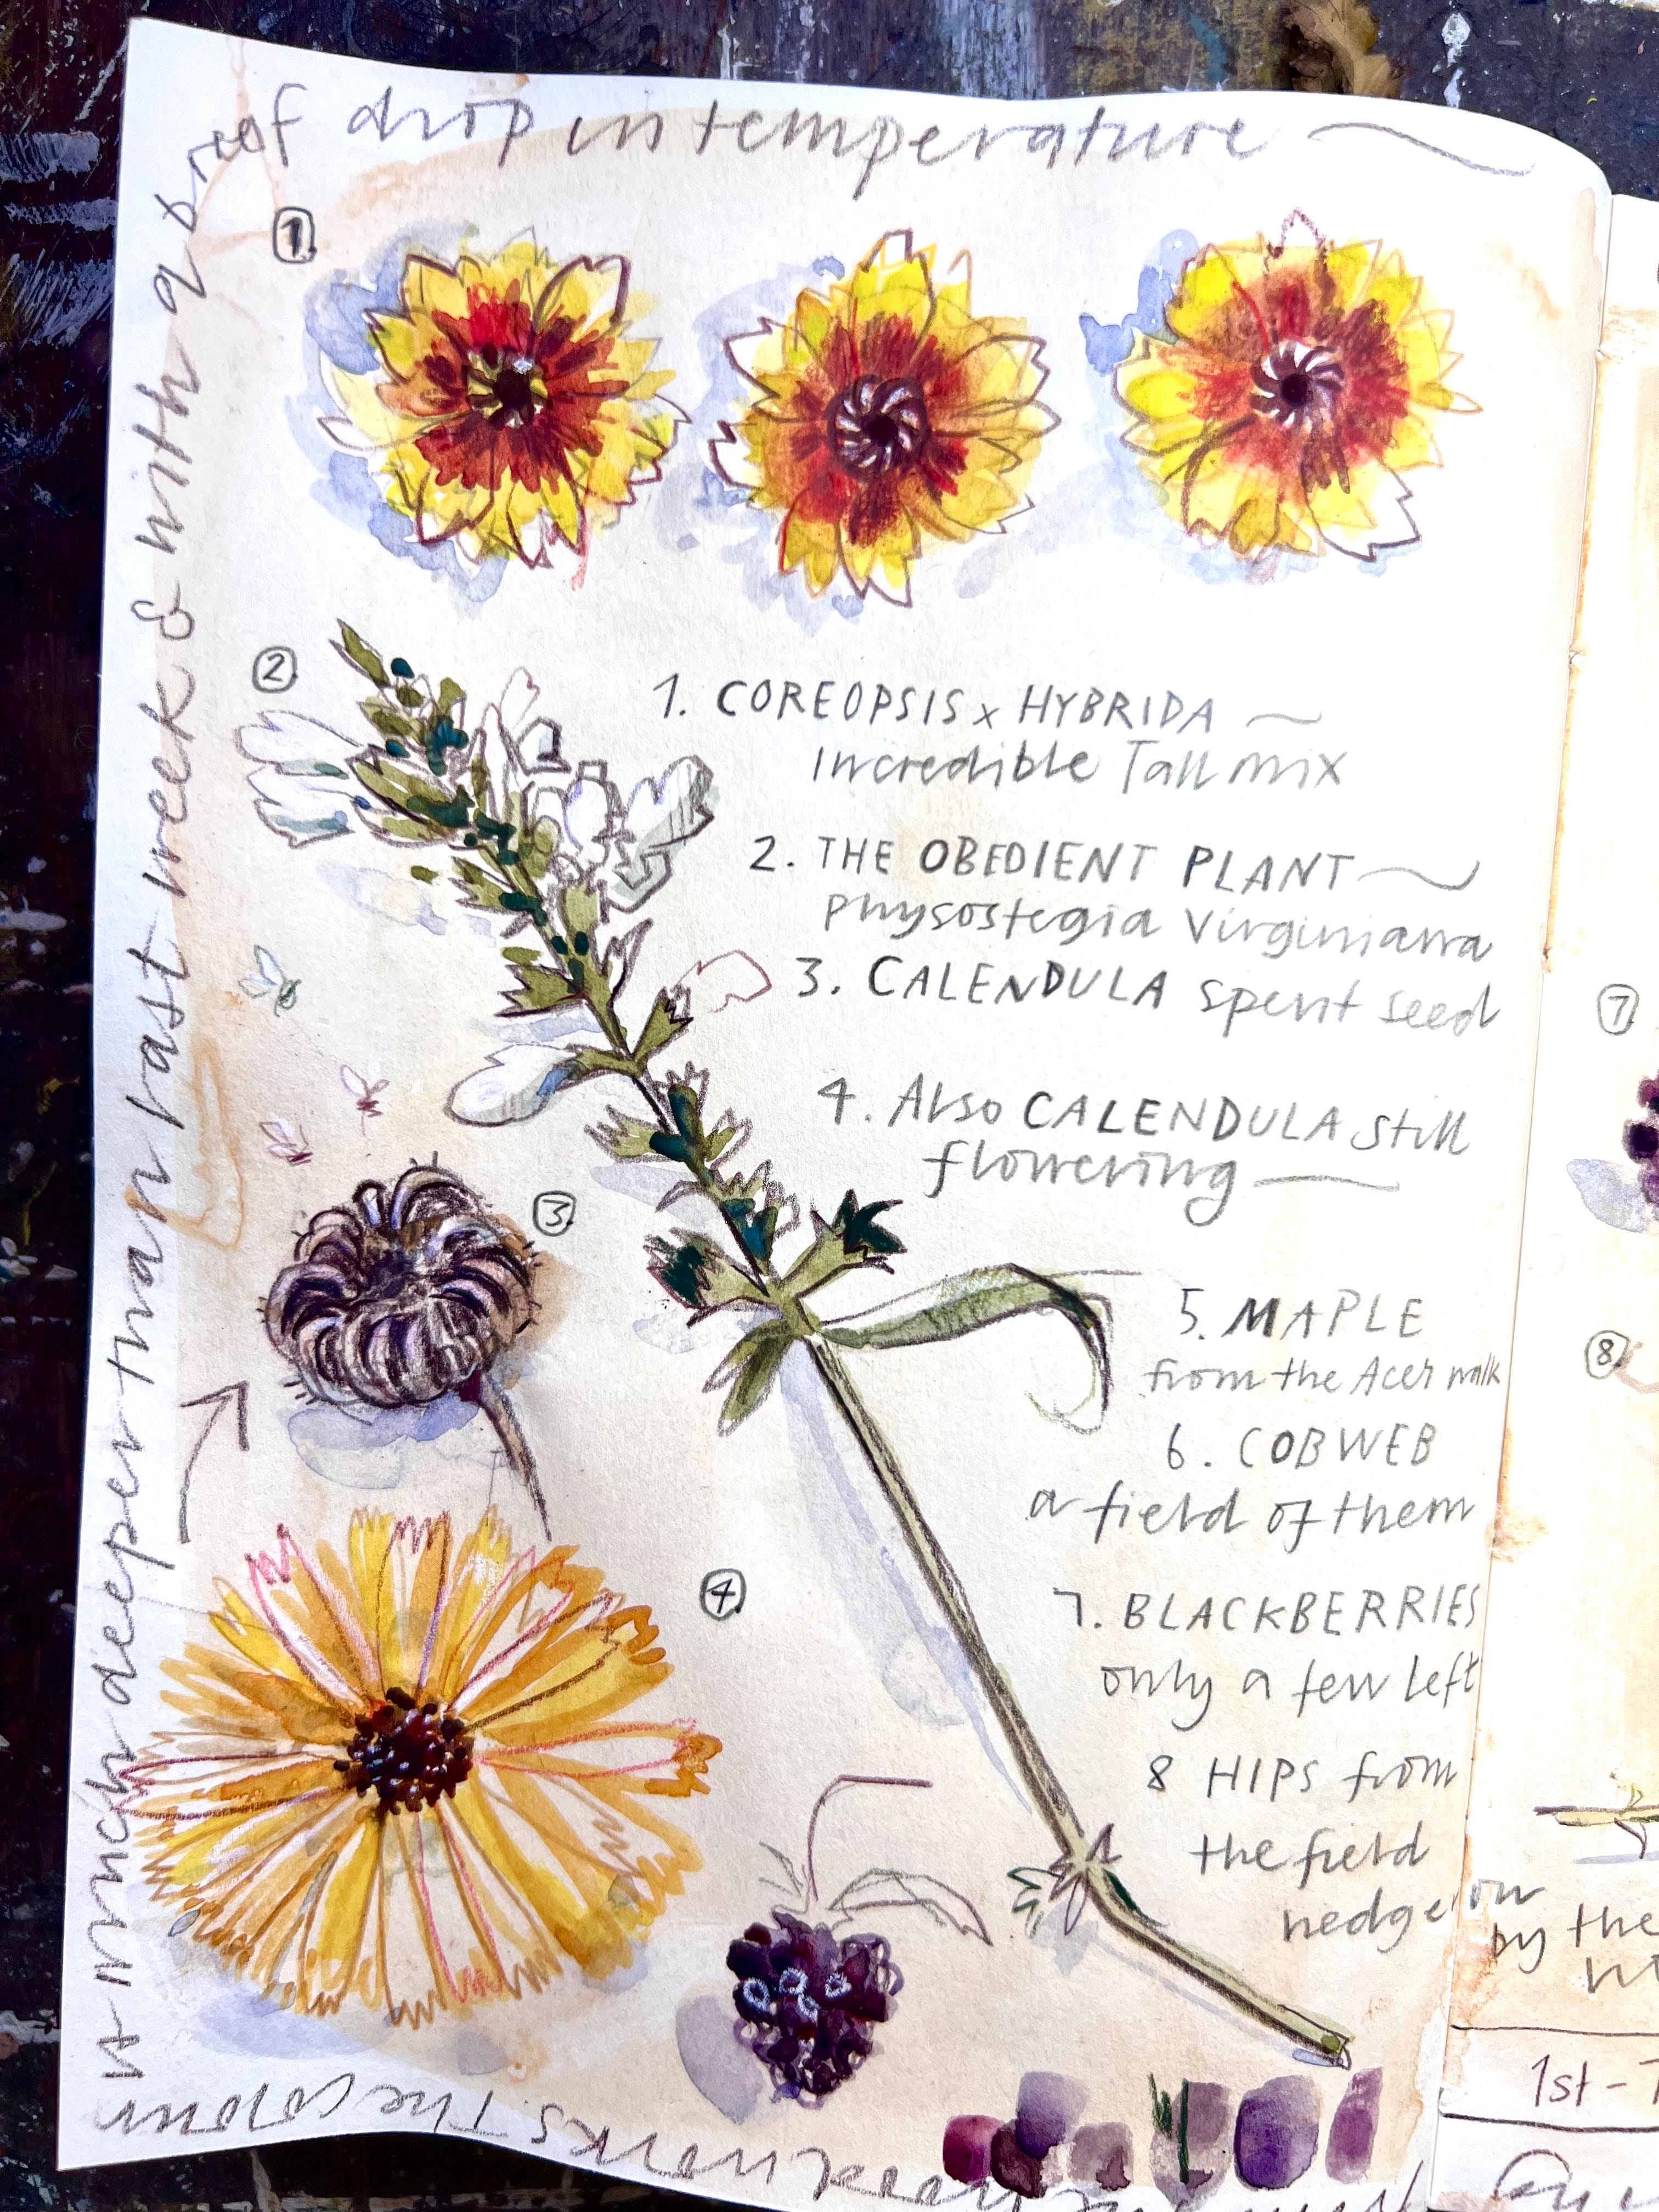 brief drop in temperature
is much deeper than last week & with a
1.
2
1. COREOPSIS x HYBRIDA
Incredible Tall mix
2. THE OBEDIENT PLANT
Physostegia Virginiana
3. CALENDULA spent seed
4. Also CALENDULA still
flowering
3
5. MAPLE
from the Acer walk
6. COBWEB
a field of them
4
7. BLACKBERRIES
only a few left
8 HIPS from
the field
hedge
. The colour
7
8
on
by the
1st -